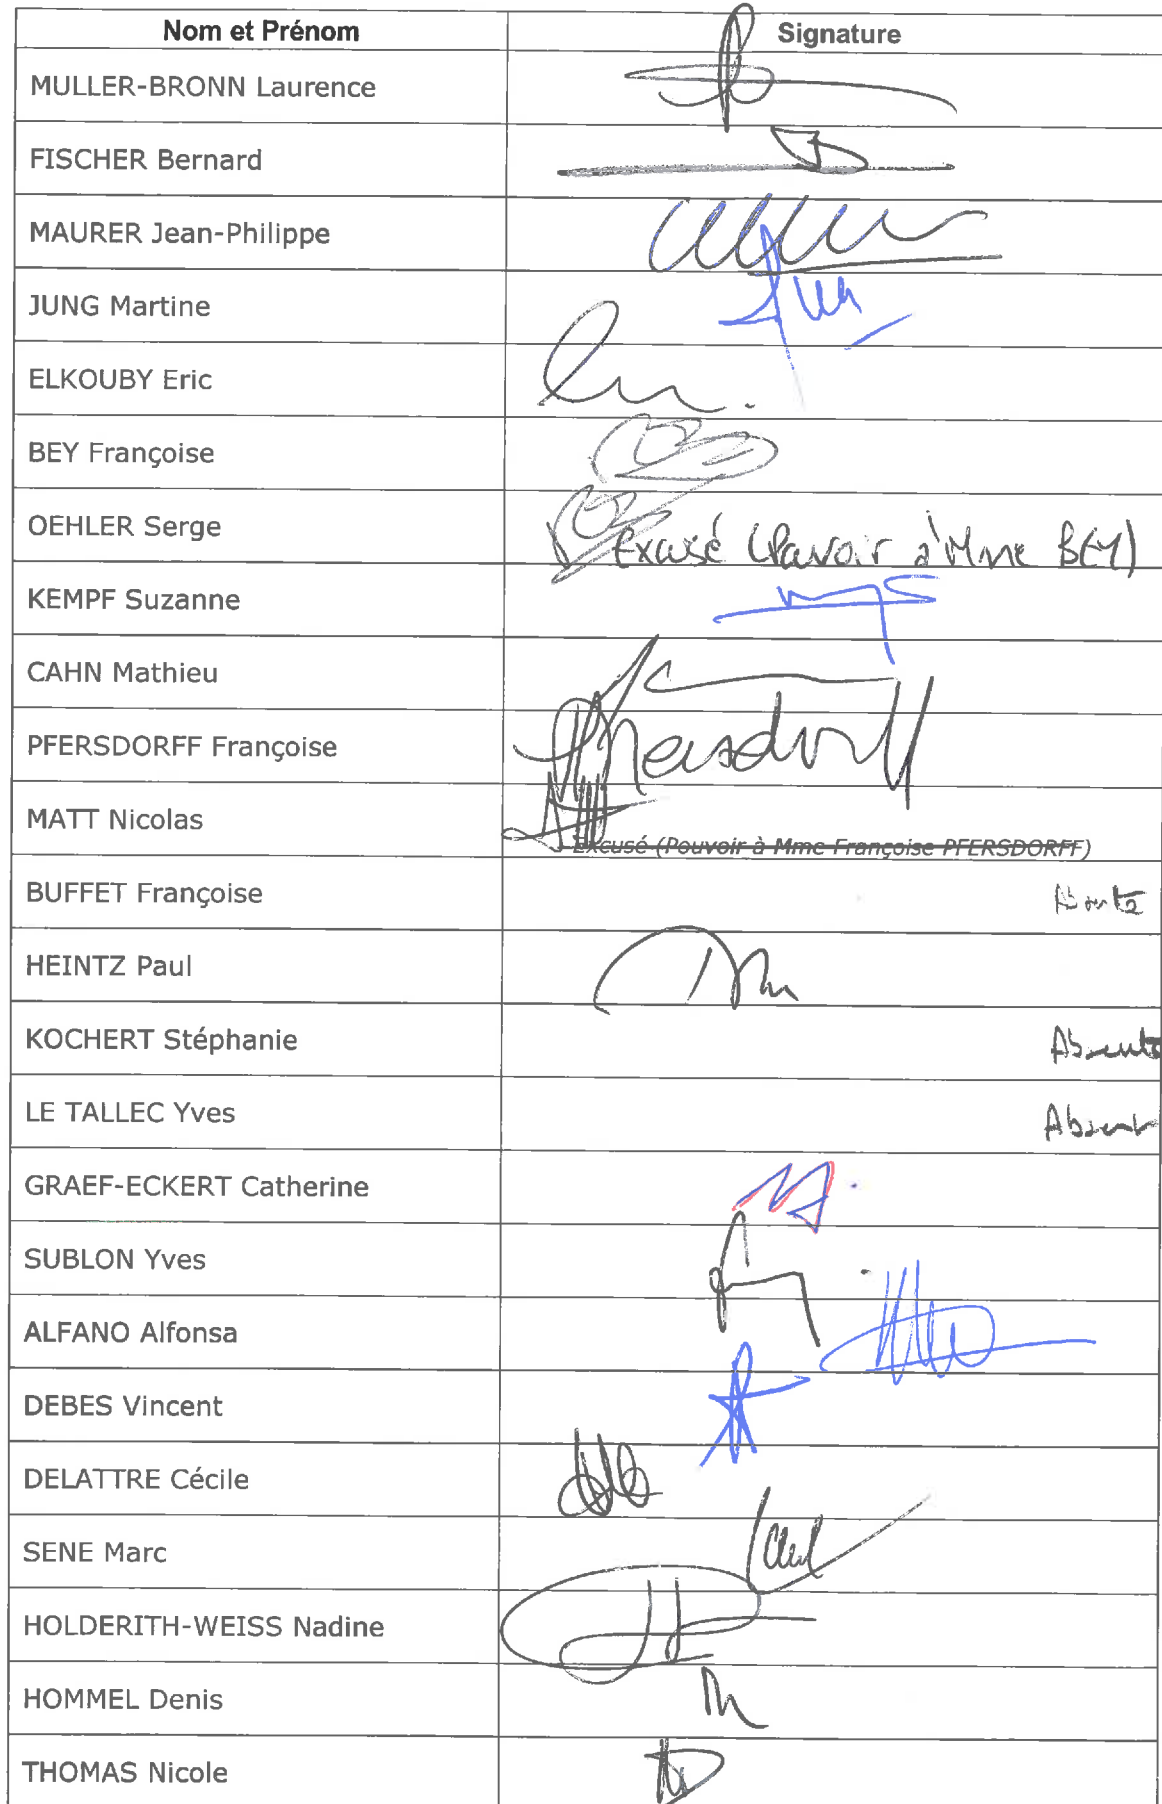 Nom et Prénom Signature
MULLER-BRONN Laurence
FISCHER Bernard
MAURER Jean-Philippe
JUNG Martine
ELKOUBY Eric
BEY Françoise
OEHLER Serge Excusé (Pouvoir à Mme BEY)
KEMPF Suzanne
CAHN Mathieu
PFERSDORFF Françoise Pfersdorff
MATT Nicolas Excusé (Pouvoir à Mme Françoise PFERSDORFF)
BUFFET Françoise Absente
HEINTZ Paul
KOCHERT Stéphanie Absente
LE TALLEC Yves Absent
GRAEF-ECKERT Catherine
SUBLON Yves
ALFANO Alfonsa
DEBES Vincent
DELATTRE Cécile
SENE Marc
HOLDERITH-WEISS Nadine
HOMMEL Denis
THOMAS Nicole